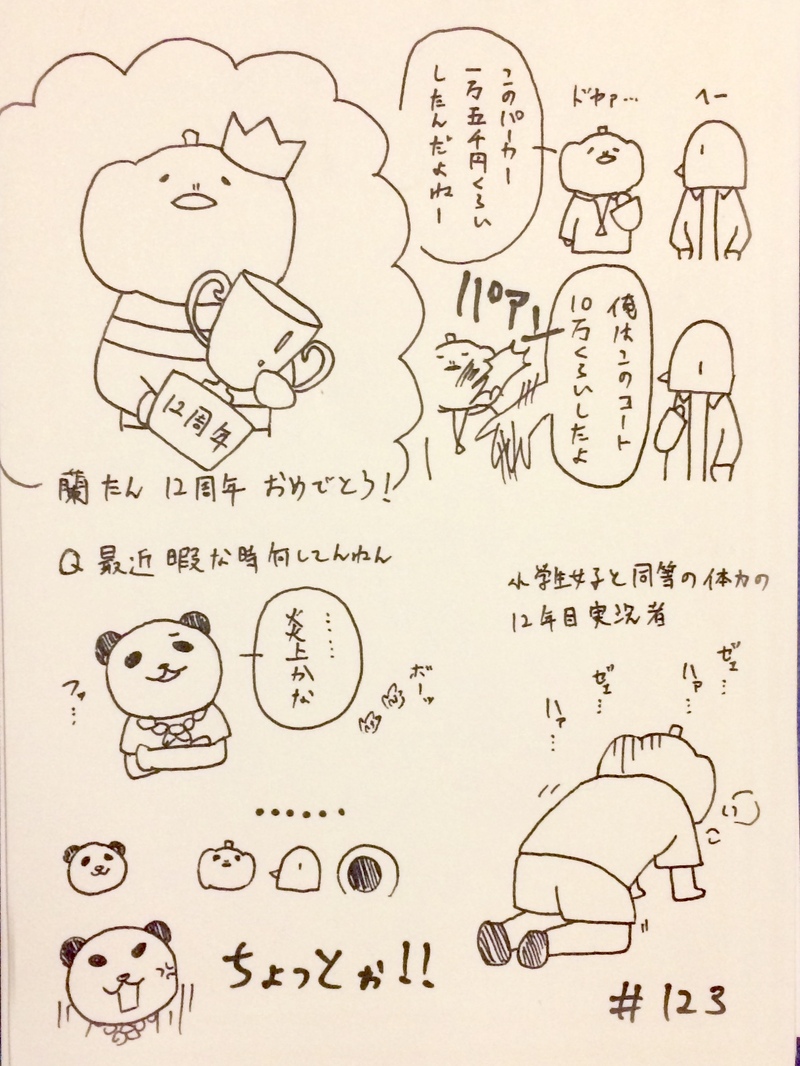 12周年
蘭たん 12周年 おめでとう!
このパーカー
一万五千円くらい
したんだよねー
ドヤァ…
へー
俺はこのコート
10万くらいしたよ
パァ!
Q 最近 暇な時 何してんねん
……
炎上かな
フッ…
ボーッ
……
ちょっとぉ!!
小学生女子と同等の体力の
12年目実況者
ゼェ…
ハァ…
ゼェ…
ハァ…
#123